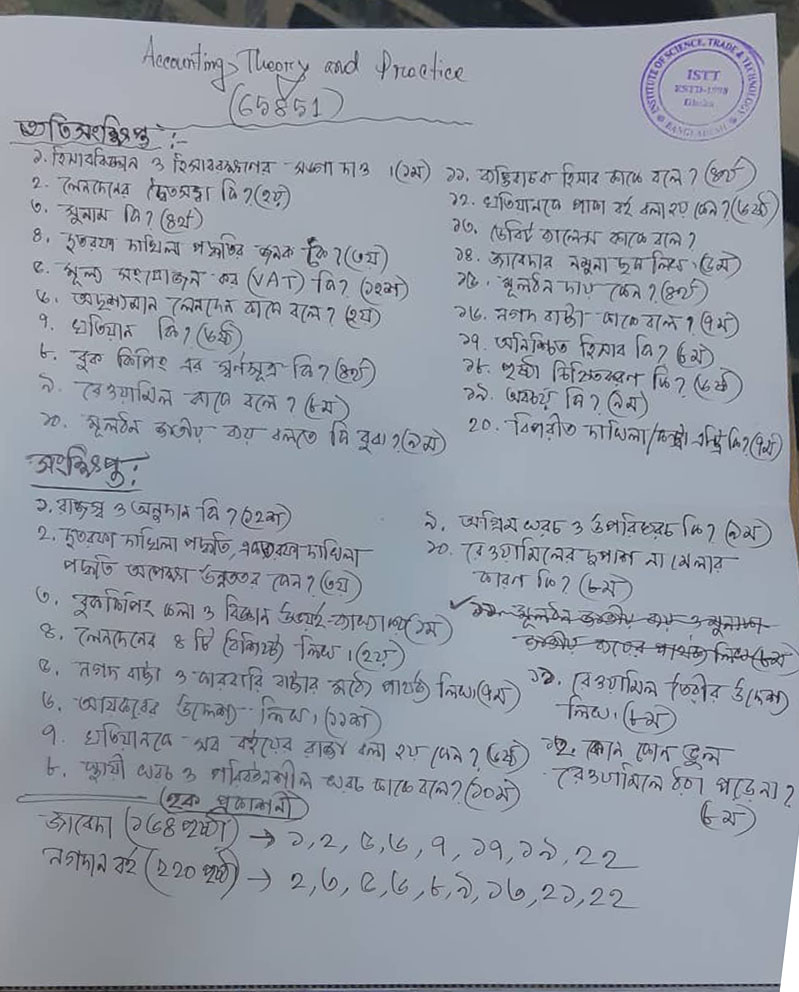 Accounting Theory and Practice
(65851)
INSTITUTE OF SCIENCE, TRADE & TECHNOLOGY
ISTT
ESTD-1998
Dhaka
BANGLADESH
অতিসংক্ষিপ্ত:-
১. হিসাববিজ্ঞান ও হিসাবরক্ষণের সংজ্ঞা দাও। (১ম)
২. লেনদেনের দ্বৈতসত্তা কি? (২য়)
৩. সুনাম কি? (৪র্থ)
৪. দুতরফা দাখিলা পদ্ধতির জনক কে? (৩য়)
৫. মূল্য সংযোজন কর (VAT) কি? (১২শ)
৬. অদৃশ্যমান লেনদেন কাকে বলে? (২য়)
৭. খতিয়ান কি? (৬ষ্ঠ)
৮. বুক কিপিং এর স্বর্ণসূত্র কি? (৪র্থ)
৯. রেওয়ামিল কাকে বলে? (৮ম)
১০. মূলধন জাতীয় ব্যয় বলতে কি বুঝ? (৯ম)
১১. ব্যক্তিবাচক হিসাব কাকে বলে? (৪র্থ)
১২. খতিয়ানকে পাকা বই বলা হয় কেন? (৬ষ্ঠ)
১৩. ডেবিট ব্যালেন্স কাকে বলে?
১৪. জাবেদার নমুনা ছক লিখ। (৫ম)
১৫. মূলধন দায় কেন? (৪র্থ)
১৬. নগদ বাট্টা কাকে বলে? (৭ম)
১৭. অনিশ্চিত হিসাব কি? (৮ম)
১৮. পৃষ্ঠা চিহ্নিতকরণ কি? (৬ষ্ঠ)
১৯. অবচয় কি? (৯ম)
২০. বিপরীত দাখিলা/কন্ট্রা এন্ট্রি কি? (৭ম)
সংক্ষিপ্ত:
১. রাজস্ব ও অনুদান কি? (১২শ)
২. দুতরফা দাখিলা পদ্ধতি, একতরফা দাখিলা
পদ্ধতি অপেক্ষা উন্নততর কেন? (৩য়)
৩. বুককিপিং কলা ও বিজ্ঞান উভয়ই-ব্যাখ্যা কর (১ম)
৪. লেনদেনের ৪ টি বৈশিষ্ট্য লিখ। (২য়)
৫. নগদ বাট্টা ও কারবারি বাট্টার মধ্যে পার্থক্য লিখ। (৭ম)
৬. আয়করের উদ্দেশ্য লিখ। (১১শ)
৭. খতিয়ানকে সব বইয়ের রাজা বলা হয় কেন? (৬ষ্ঠ)
৮. স্থায়ী খরচ ও পরিবর্তনশীল খরচ কাকে বলে? (১০ম)
৯. অগ্রিম খরচ ও উপরিখরচ কি? (৯ম)
১০. রেওয়ামিলের দুপাশ না মেলার
কারণ কি? (৮ম)
১১. মূলধন জাতীয় ব্যয় ও মুনাফা
জাতীয় ব্যয়ের পার্থক্য লিখ (৮ম)
১১. রেওয়ামিল তৈরীর উদ্দেশ্য
লিখ। (৮ম)
১২. কোন কোন ভুল
রেওয়ামিলে ধরা পড়ে না?
(৮ম)
(হক প্রকাশনী)
জাবেদা (১৬৪ পৃষ্ঠা) → ১, ২, ৫, ৬, ৭, ১৭, ১৯, ২২
নগদান বই (২২০ পৃষ্ঠা) → ২, ৩, ৫, ৬, ৮, ৯, ১৩, ২১, ২২